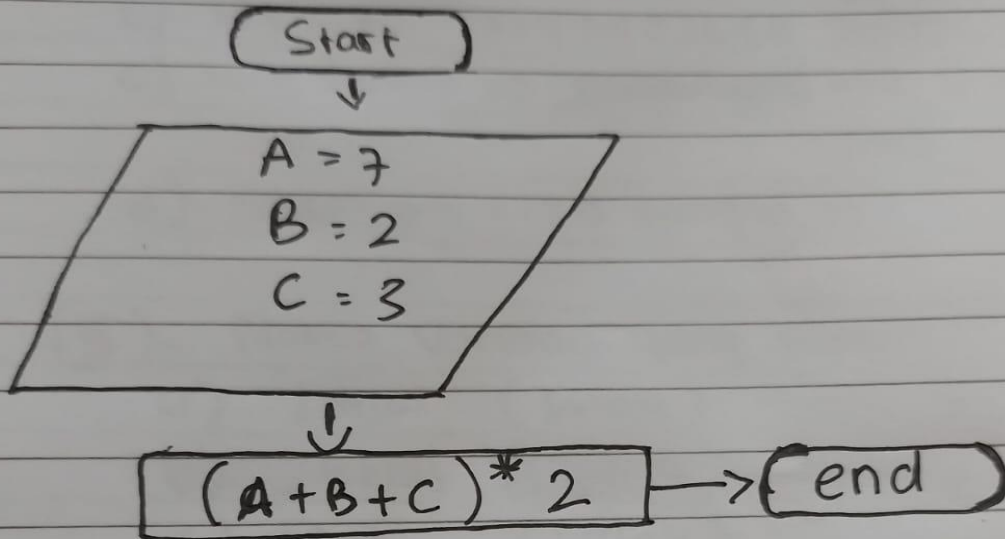 Start
A = 7
B = 2
C = 3
(A+B+C)* 2
end